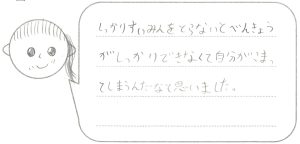 しっかりすいみんをとらないとべんきょう
がしっかりできなくて自分がこまっ
てしまうんだなと思いました。